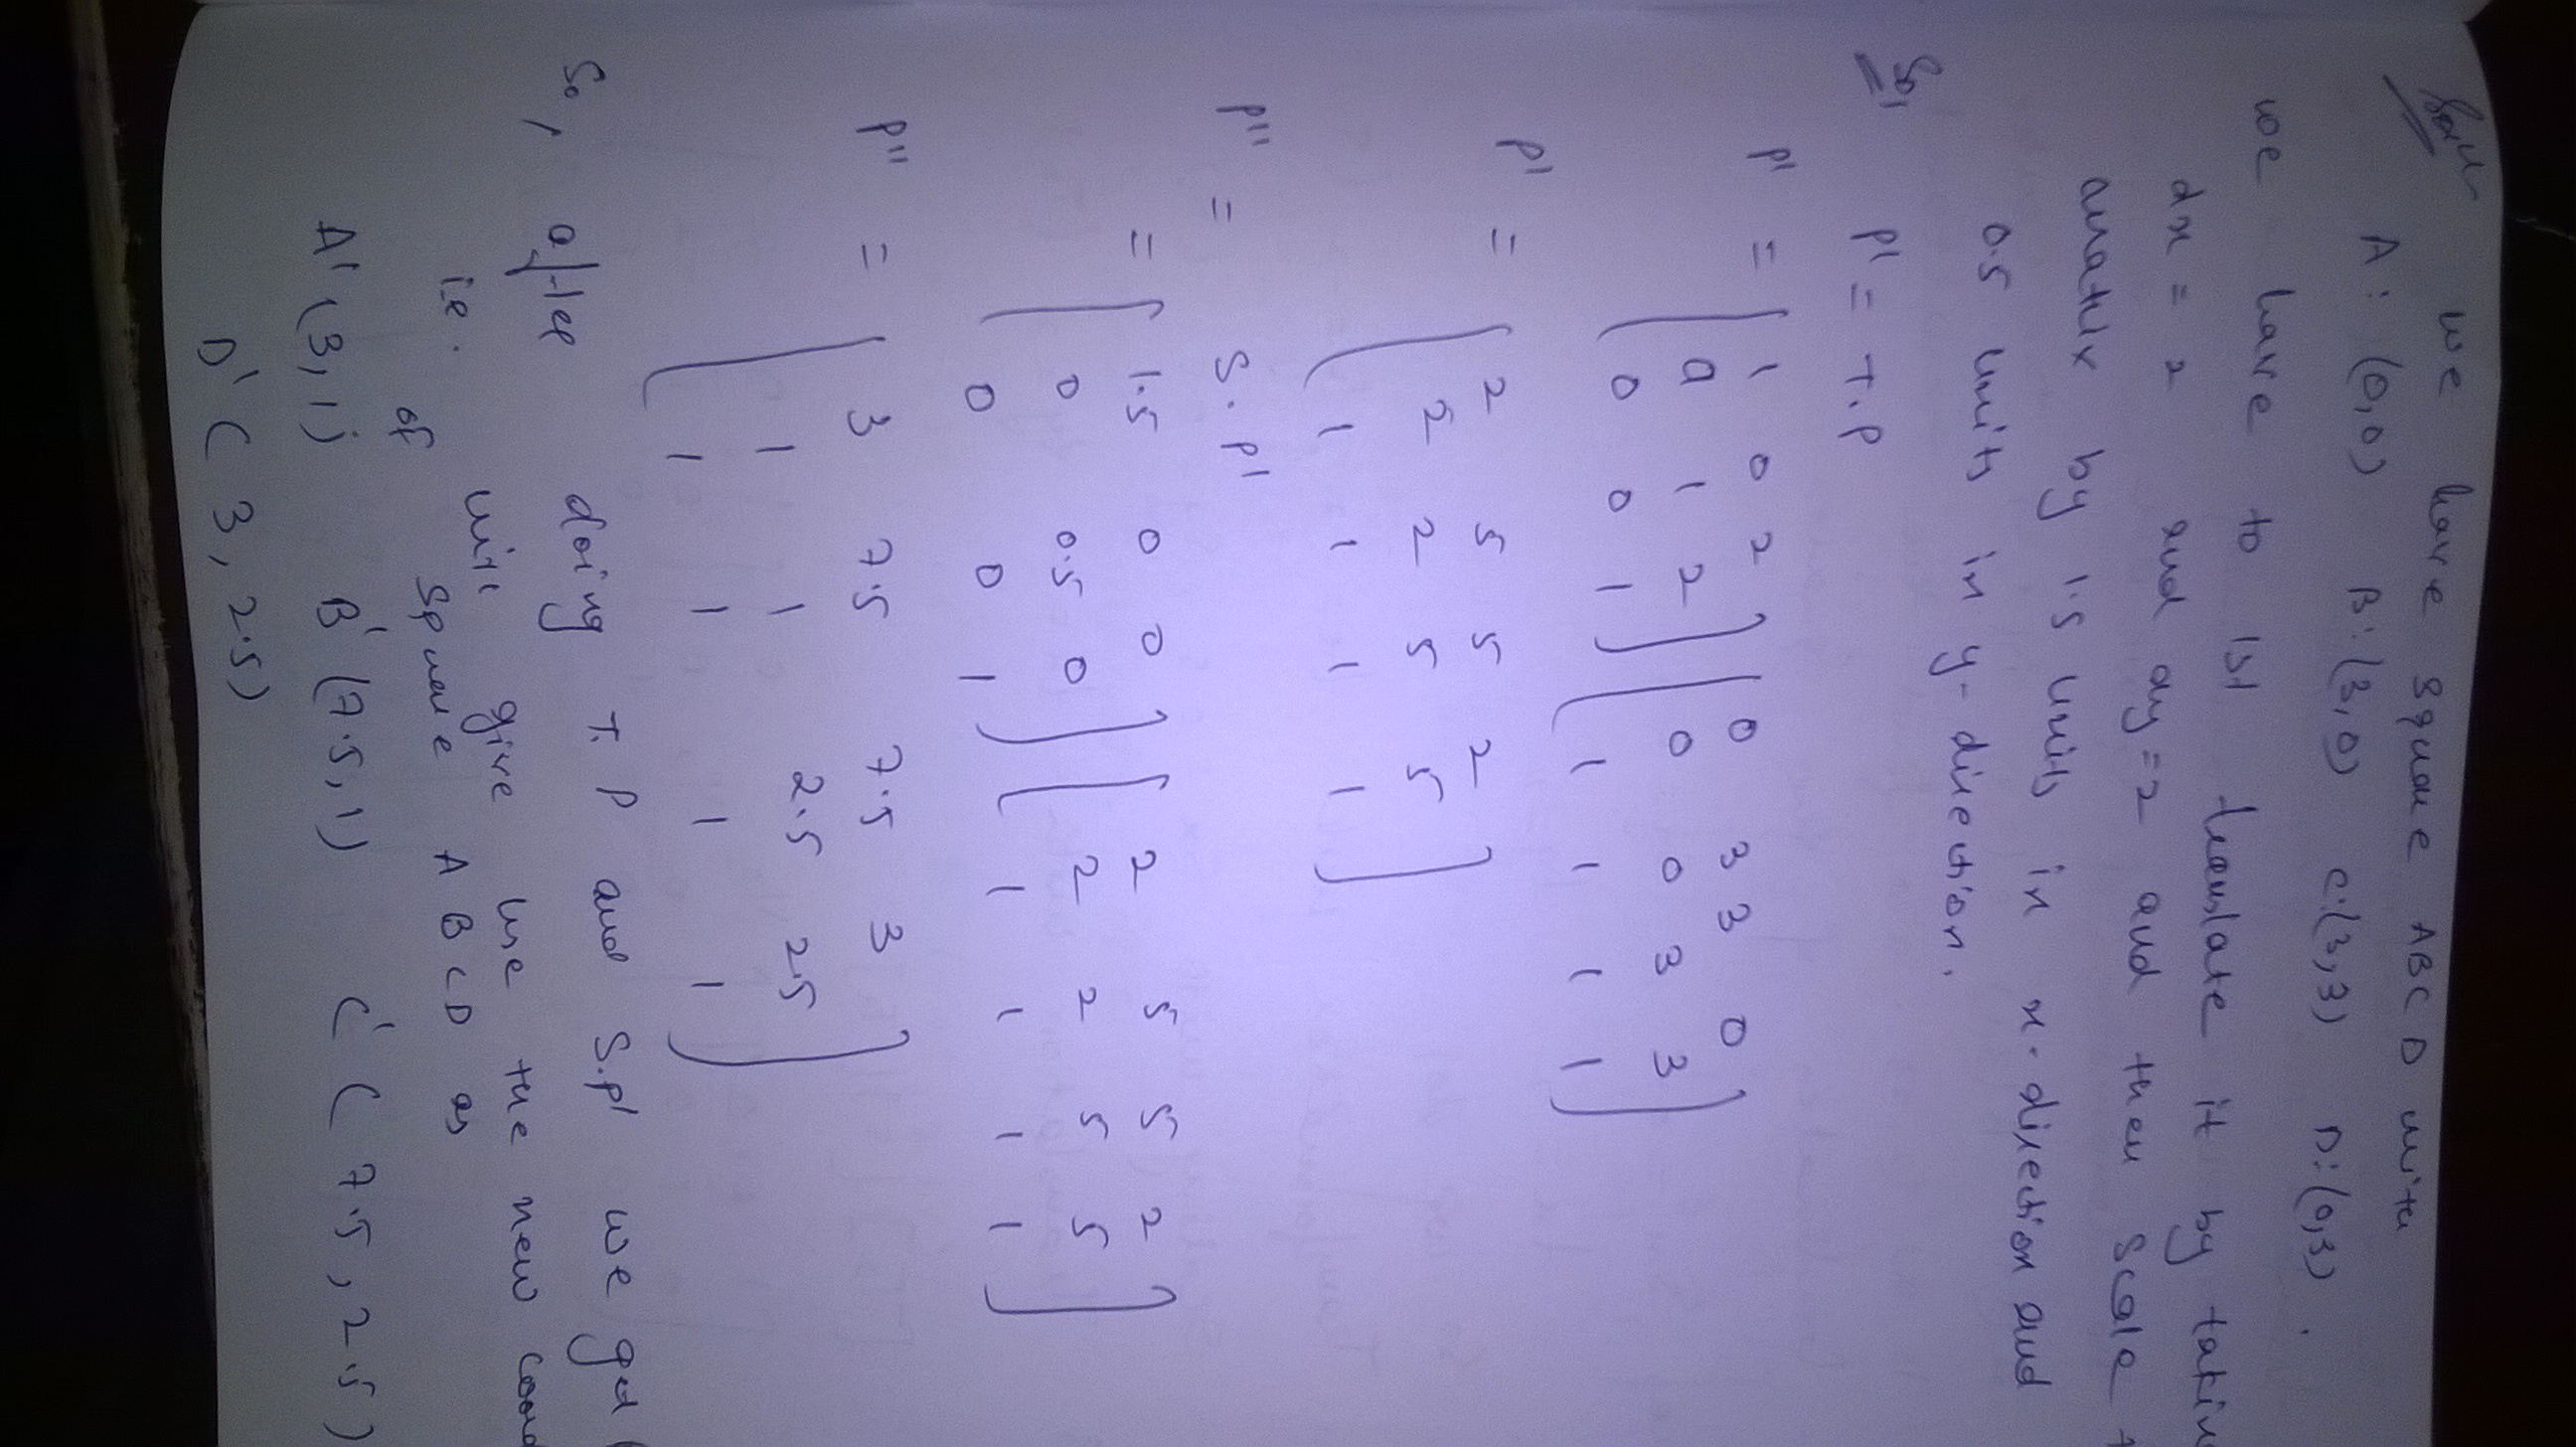 Soln we have square ABCD with
A: (0,0) B: (3,0) C: (3,3) D: (0,3).
we have to 1st translate it by takin
dx = 2 and dy = 2 and then scale
matrix by 1.5 units in x-direction and
0.5 units in y-direction.
So, p' = T.P
p' = [ 1 0 2 ] [ 0 3 3 0 ]
0 1 2 0 0 3 3
0 0 1 1 1 1 1
p' = [ 2 5 5 2 ]
2 2 5 5
1 1 1 1
p'' = S.p'
= [ 1.5 0 0 ] [ 2 5 5 2 ]
0 0.5 0 2 2 5 5
0 0 1 1 1 1 1
p'' = [ 3 7.5 7.5 3 ]
1 1 2.5 2.5
1 1 1 1
So, after doing T.P and S.p' we get
i.e. will give us the new coord
of square ABCD as
A' (3,1) B' (7.5,1) C' (7.5, 2.5)
D' (3, 2.5)